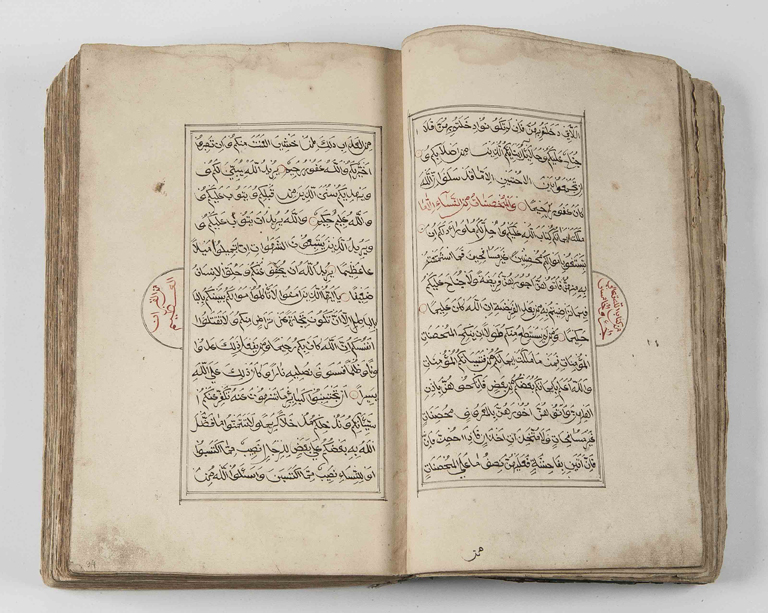 اللاتي دخلتم بهن فان لم تكونوا دخلتم بهن فلا
جناح عليكم وحلائل ابنائكم الذين من اصلابكم و
ان تجمعوا بين الاختين الا ما قد سلف ان الله
كان غفورا رحيما والمحصنات من النساء الا ما
ملكت ايمانكم كتاب الله عليكم واحل لكم ما وراء ذلكم ان
تبتغوا باموالكم محصنين غير مسافحين فما استمتعتم
به منهن فاتوهن اجورهن فريضة ولا جناح عليكم
فيما تراضيتم به من بعد الفريضة ان الله كان عليما
حكيما ومن لم يستطع منكم طولا ان ينكح المحصنات
المؤمنات فمن ما ملكت ايمانكم من فتياتكم المؤمنات
والله اعلم بايمانكم بعضكم من بعض فانكحوهن باذن
اهلهن واتوهن اجورهن بالمعروف محصنات
غير مسافحات ولا متخذات اخدان فاذا احصن فان
اتين بفاحشة فعليهن نصف ما على المحصنات
من
من العذاب ذلك لمن خشي العنت منكم وان تصبروا
خير لكم والله غفور رحيم يريد الله ليبين لكم
ويهديكم سنن الذين من قبلكم ويتوب عليكم
والله عليم حكيم والله يريد ان يتوب عليكم
ويريد الذين يتبعون الشهوات ان تميلوا ميلا
عظيما يريد الله ان يخفف عنكم وخلق الانسان
ضعيفا يا ايها الذين امنوا لا تاكلوا اموالكم بينكم
بالباطل الا ان تكون تجارة عن تراض منكم ولا تقتلوا
انفسكم ان الله كان بكم رحيما ومن يفعل ذلك عدوا
نا وظلما فسوف نصليه نارا وكان ذلك على الله
يسيرا ان تجتنبوا كبائر ما تنهون عنه نكفر عنكم
سيئاتكم وندخلكم مدخلا كريما ولا تتمنوا ما فضل
الله به بعضكم على بعض للرجال نصيب مما اكتسبوا
وللنساء نصيب مما اكتسبن وسئلوا الله من